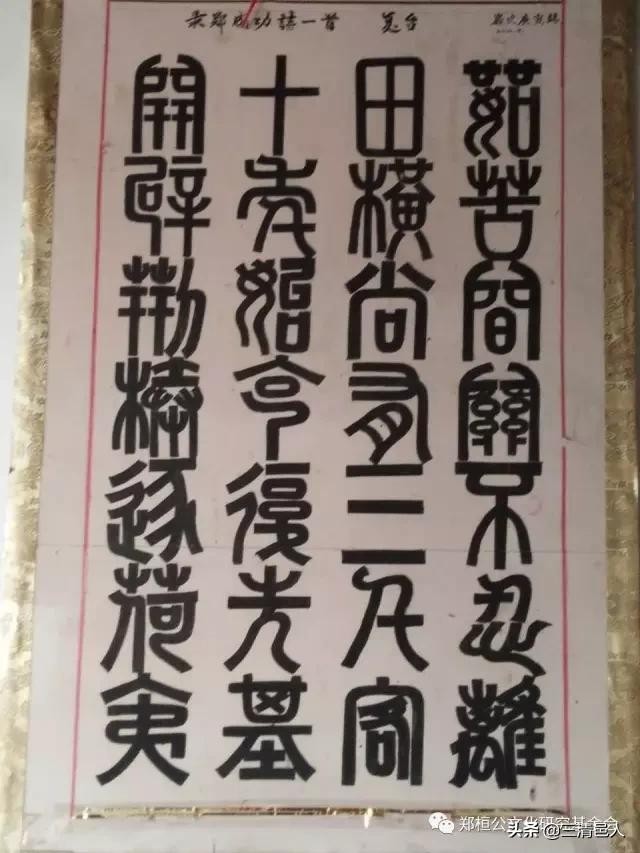 录郑成功詩一首 复台
開辟荊榛逐荷夷
十年始克復先基
田橫尚有三千客
茹苦間關不忍離
郑桓公文化研究基金会
头条@三清巨人